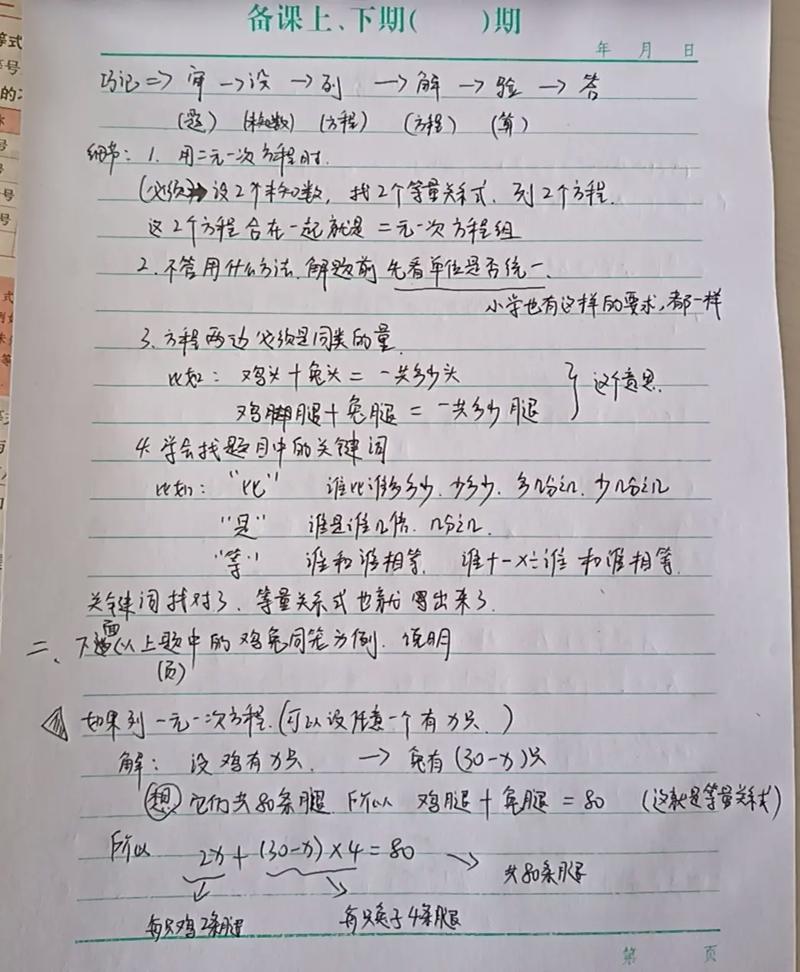 备课上、下期(  )期
年 月 日
巧记=> 审 → 设 → 列 → 解 → 验 → 答
(题) (未知数) (方程) (方程) (算)
细节: 1. 用二元一次方程时.
(必须)→ 设2个未知数, 找2个等量关系式. 列2个方程.
这2个方程合在一起就是二元一次方程组
2. 不管用什么方法. 解题前 先看单位是否统一.
小学也有这样的要求,都一样
3. 方程两边必须是同类的量.
比如: 鸡头+兔头=一共多少头
鸡脚腿+兔腿=一共多少腿 } 这个意思.
4. 学会找题目中的关键词
比如: "比" 谁比谁多多少. 少多少. 多几分之几. 少几分之几
"是" 谁是谁几倍. 几分之几.
"等" 谁和谁相等. 谁+-×÷谁 和谁相等.
关键词找对了. 等量关系式也就写出来了.
二、下面以上题中的鸡兔同笼为例. 说明
(页)
如果列一元一次方程.(可以设任意一个有x只.)
解: 设鸡有x只. → 兔有(30-x)只
(想) 它们共80条腿 所以 鸡腿+兔腿=80 (这就是等量关系式)
所以 2x+(30-x)×4=80 → 共80条腿
每只鸡2条腿 每只兔子4条腿
第 页